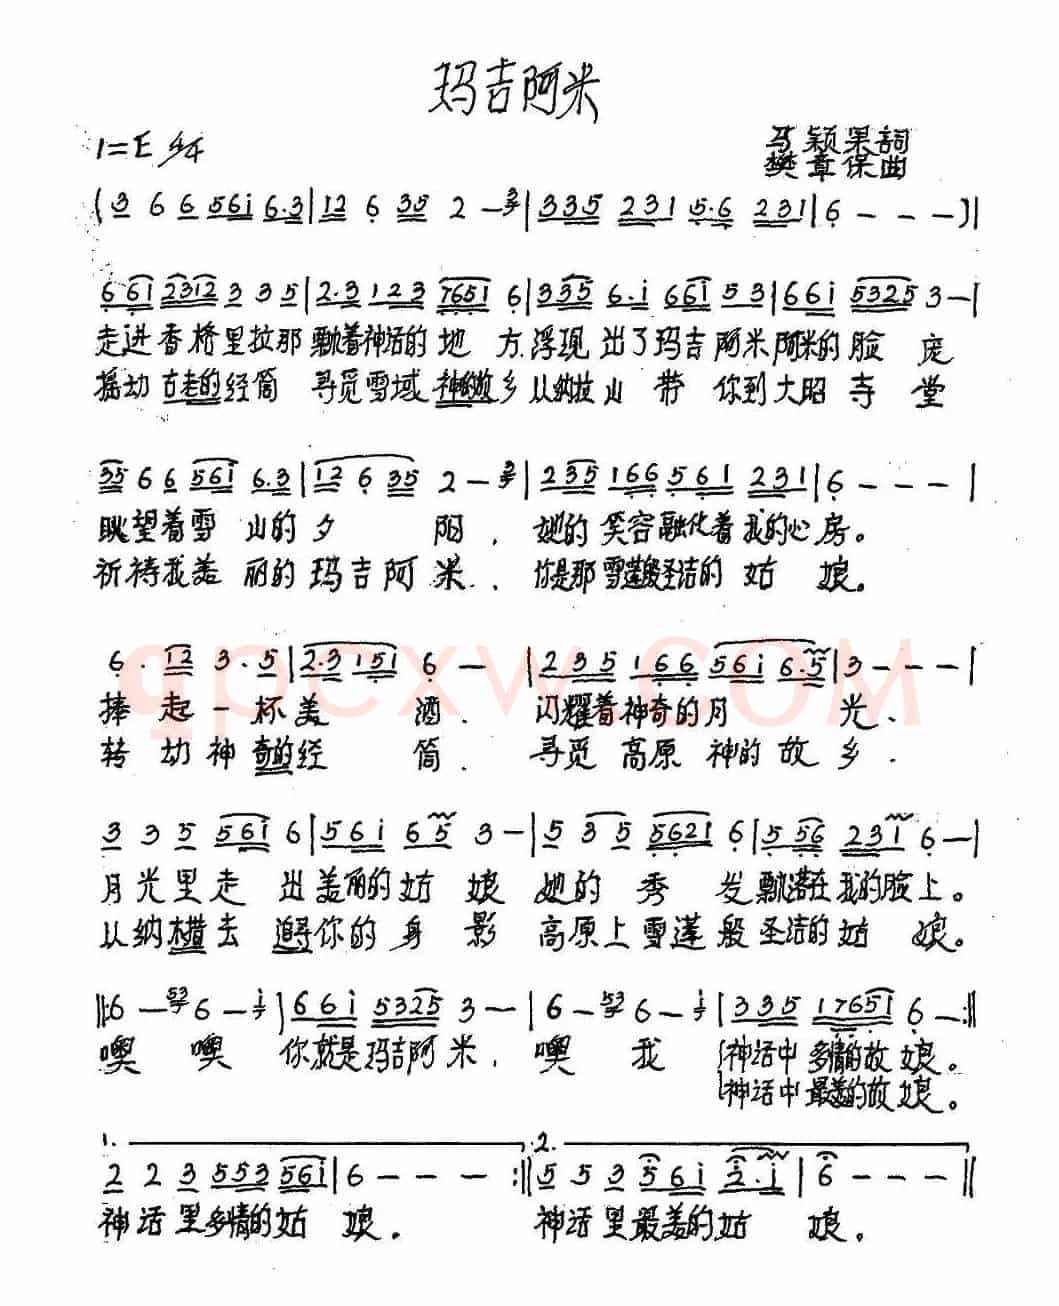 玛吉阿米
1=E 4/4
马颖果詞
樊章保曲
(3 6 6 561 6.3|12 6 35 2 — 3|335 231 5.6 231|6 — — —)|
661 2312 3 3 5|2.3 123 7651 6|335 6.1 661 53|661 5325 3—|
走进香格里拉那飘着神话的地方.浮现出了玛吉阿米阿米的脸庞
摇动古老的经筒寻觅雪域神的故乡从纳拉山带你到大昭寺堂
35 6 6 561 6.3|12 6 35 2 — 3|235 166 561 231|6 — — —|
眺望着雪山的夕阳.她的笑容融化着我的心房。
祈祷我美丽的玛吉阿米.你是那雪莲般圣洁的姑娘。
6. 12 3. 5|2.3 151 6 —|235 166 561 6.5|3 — — —|
捧起一杯美酒.闪耀着神奇的月光.
转动神奇的经筒.寻觅高原神的故乡.
qpcxw.COM
3 3 5 561 6|561 65 3—|5 35 5621 6|556 231 6—|
月光里走出美丽的姑娘她的秀发飘落在我的脸上。
从纳木措去追寻你的身影高原上雪莲般圣洁的姑娘。
‖:6 — 53 6 — 1|661 5325 3 —|6 — 53 6 — 1|335 17651 6 —:‖
噢噢你就是玛吉阿米.噢我神话中多情的故娘。
神话中最美的故娘。
1. 2.
2 2 3 553 561|6 — — — :‖5 5 3 561 2.1|6 — — —‖
神话里多情的姑娘.神话里最美的姑娘。